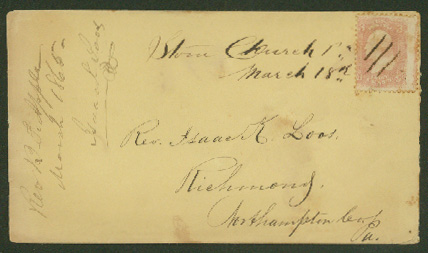 Stone Church Pa
March 18th
Rev. Isaac K. Loos.
Richmond.
Northampton Co.
Pa.
Rev R
March 1865
Isaac Loos